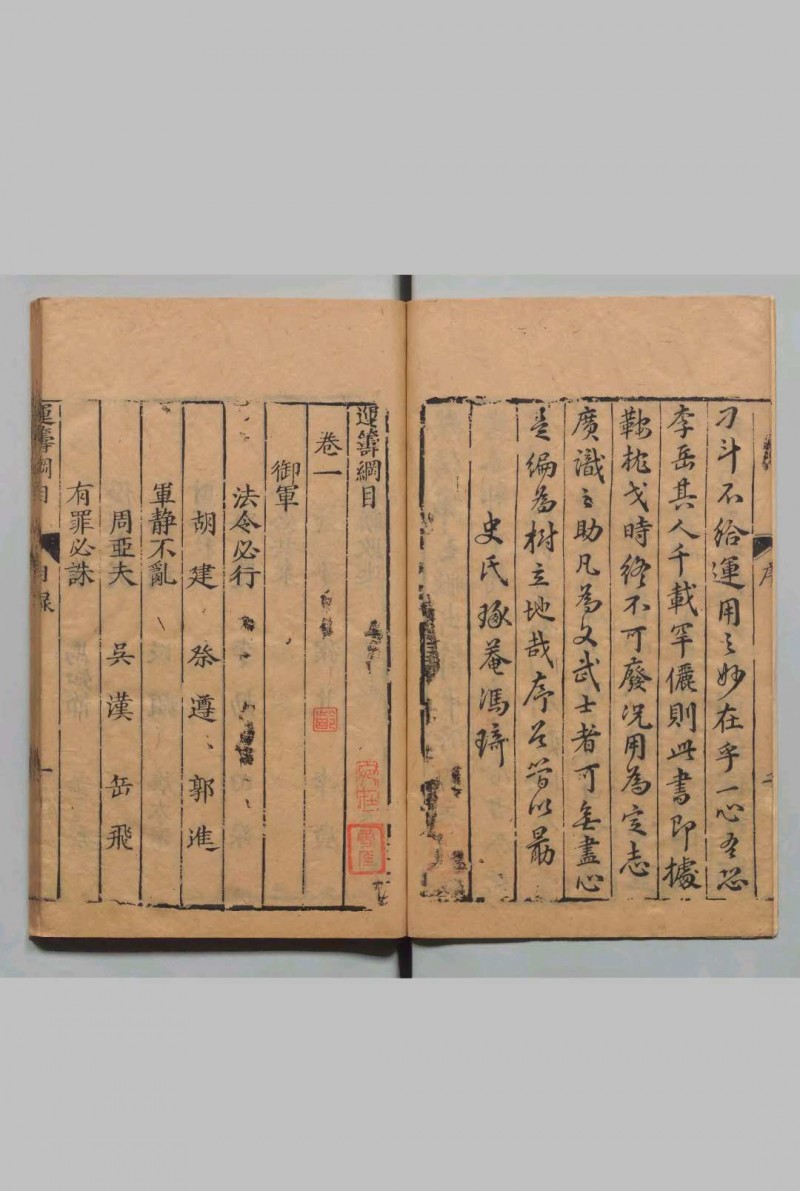 刁斗不給運用之妙在乎一心吾恐
李岳其人千載罕儷則此書即據
鞍枕戈時終不可廢况用為定志
廣識之助凡為文武士者可無盡心
是編為樹立地哉序
史氏琢菴馮琦
序
二
運籌綱目
卷一
御軍
法令必行
胡建 祭遵 郭進
軍静不亂
周亞夫 吳漢 岳飛
有罪必誅
運籌綱目
目録
一